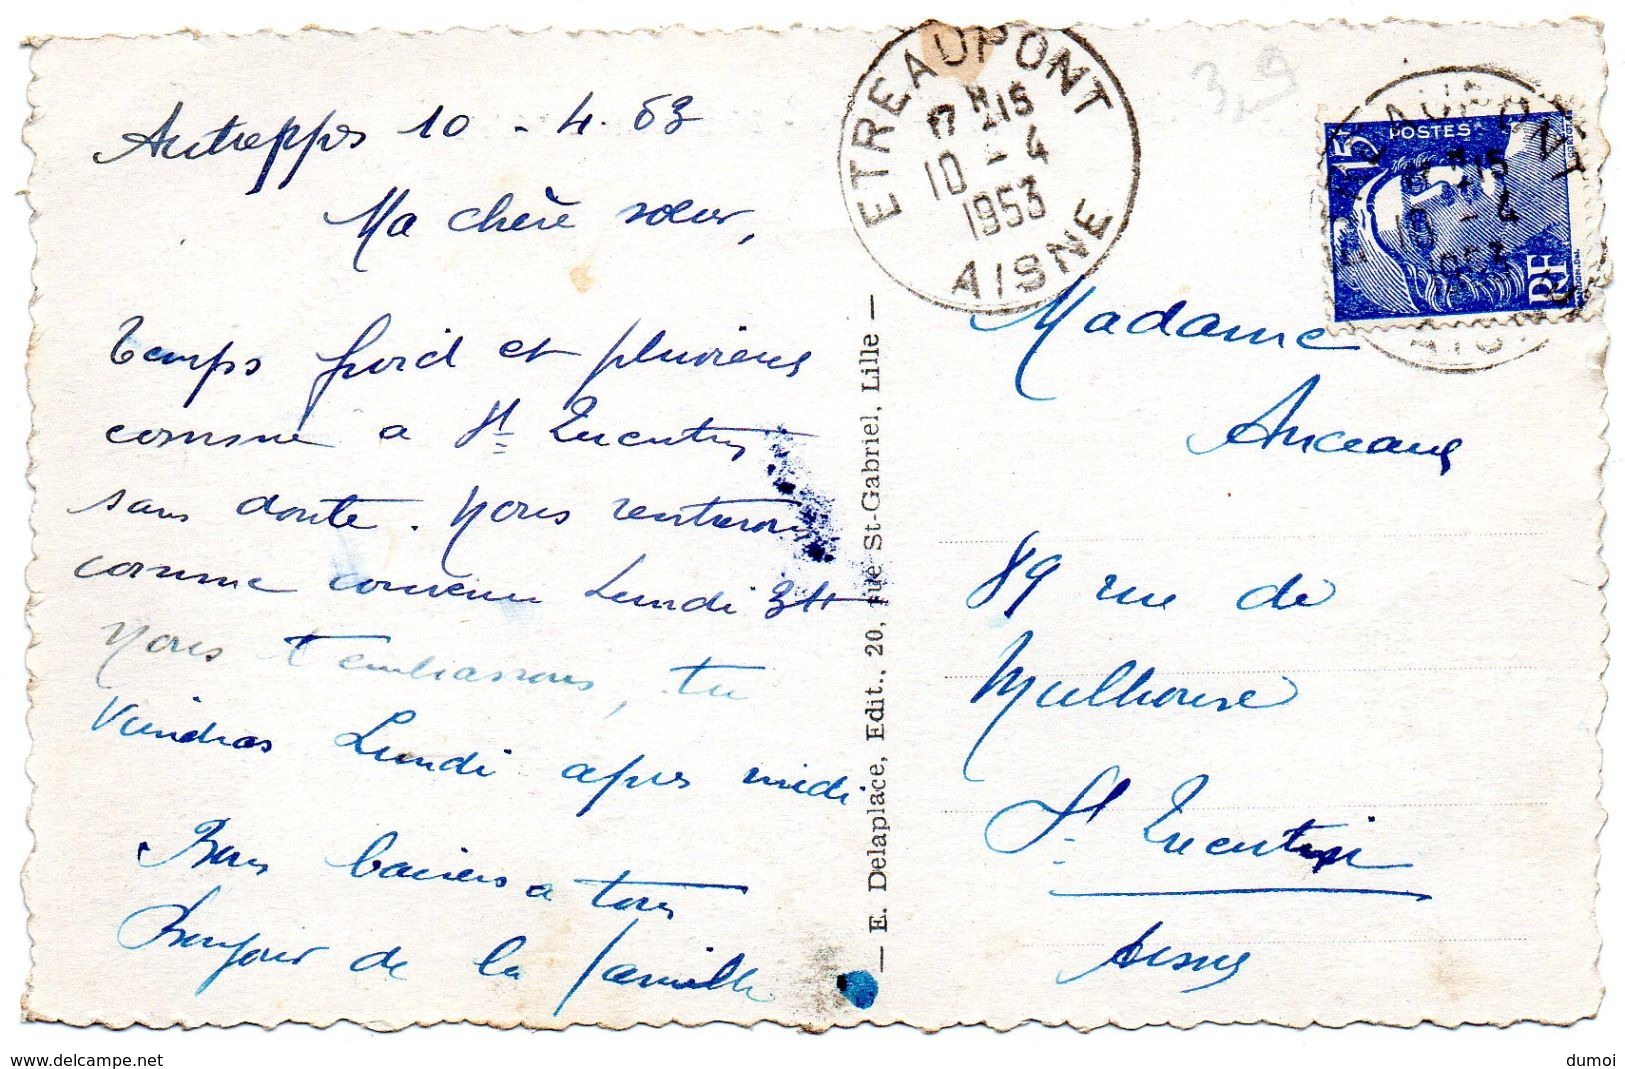 Autreppes 10 - 4. 53
Ma chère sœur,
Temps froid et pluvieux
comme a St Quentin
sans doute. Nous rentrerons
comme convenu Lundi
Nous t'embrassons, tu
viendras Lundi après midi
Bons baisers a tous
Bonjour de la famille
— E. Delaplace, Edit., 20, rue St-Gabriel, Lille —
ETREAUPONT
17 H 15
10 - 4
1953
AISNE
3,9
15F
POSTES
RF
17 H 15
10 - 4
1953
Madame
Anceaux
89 rue de
Mulhouse
St Quentin
Aisne
www.delcampe.net
dumoi